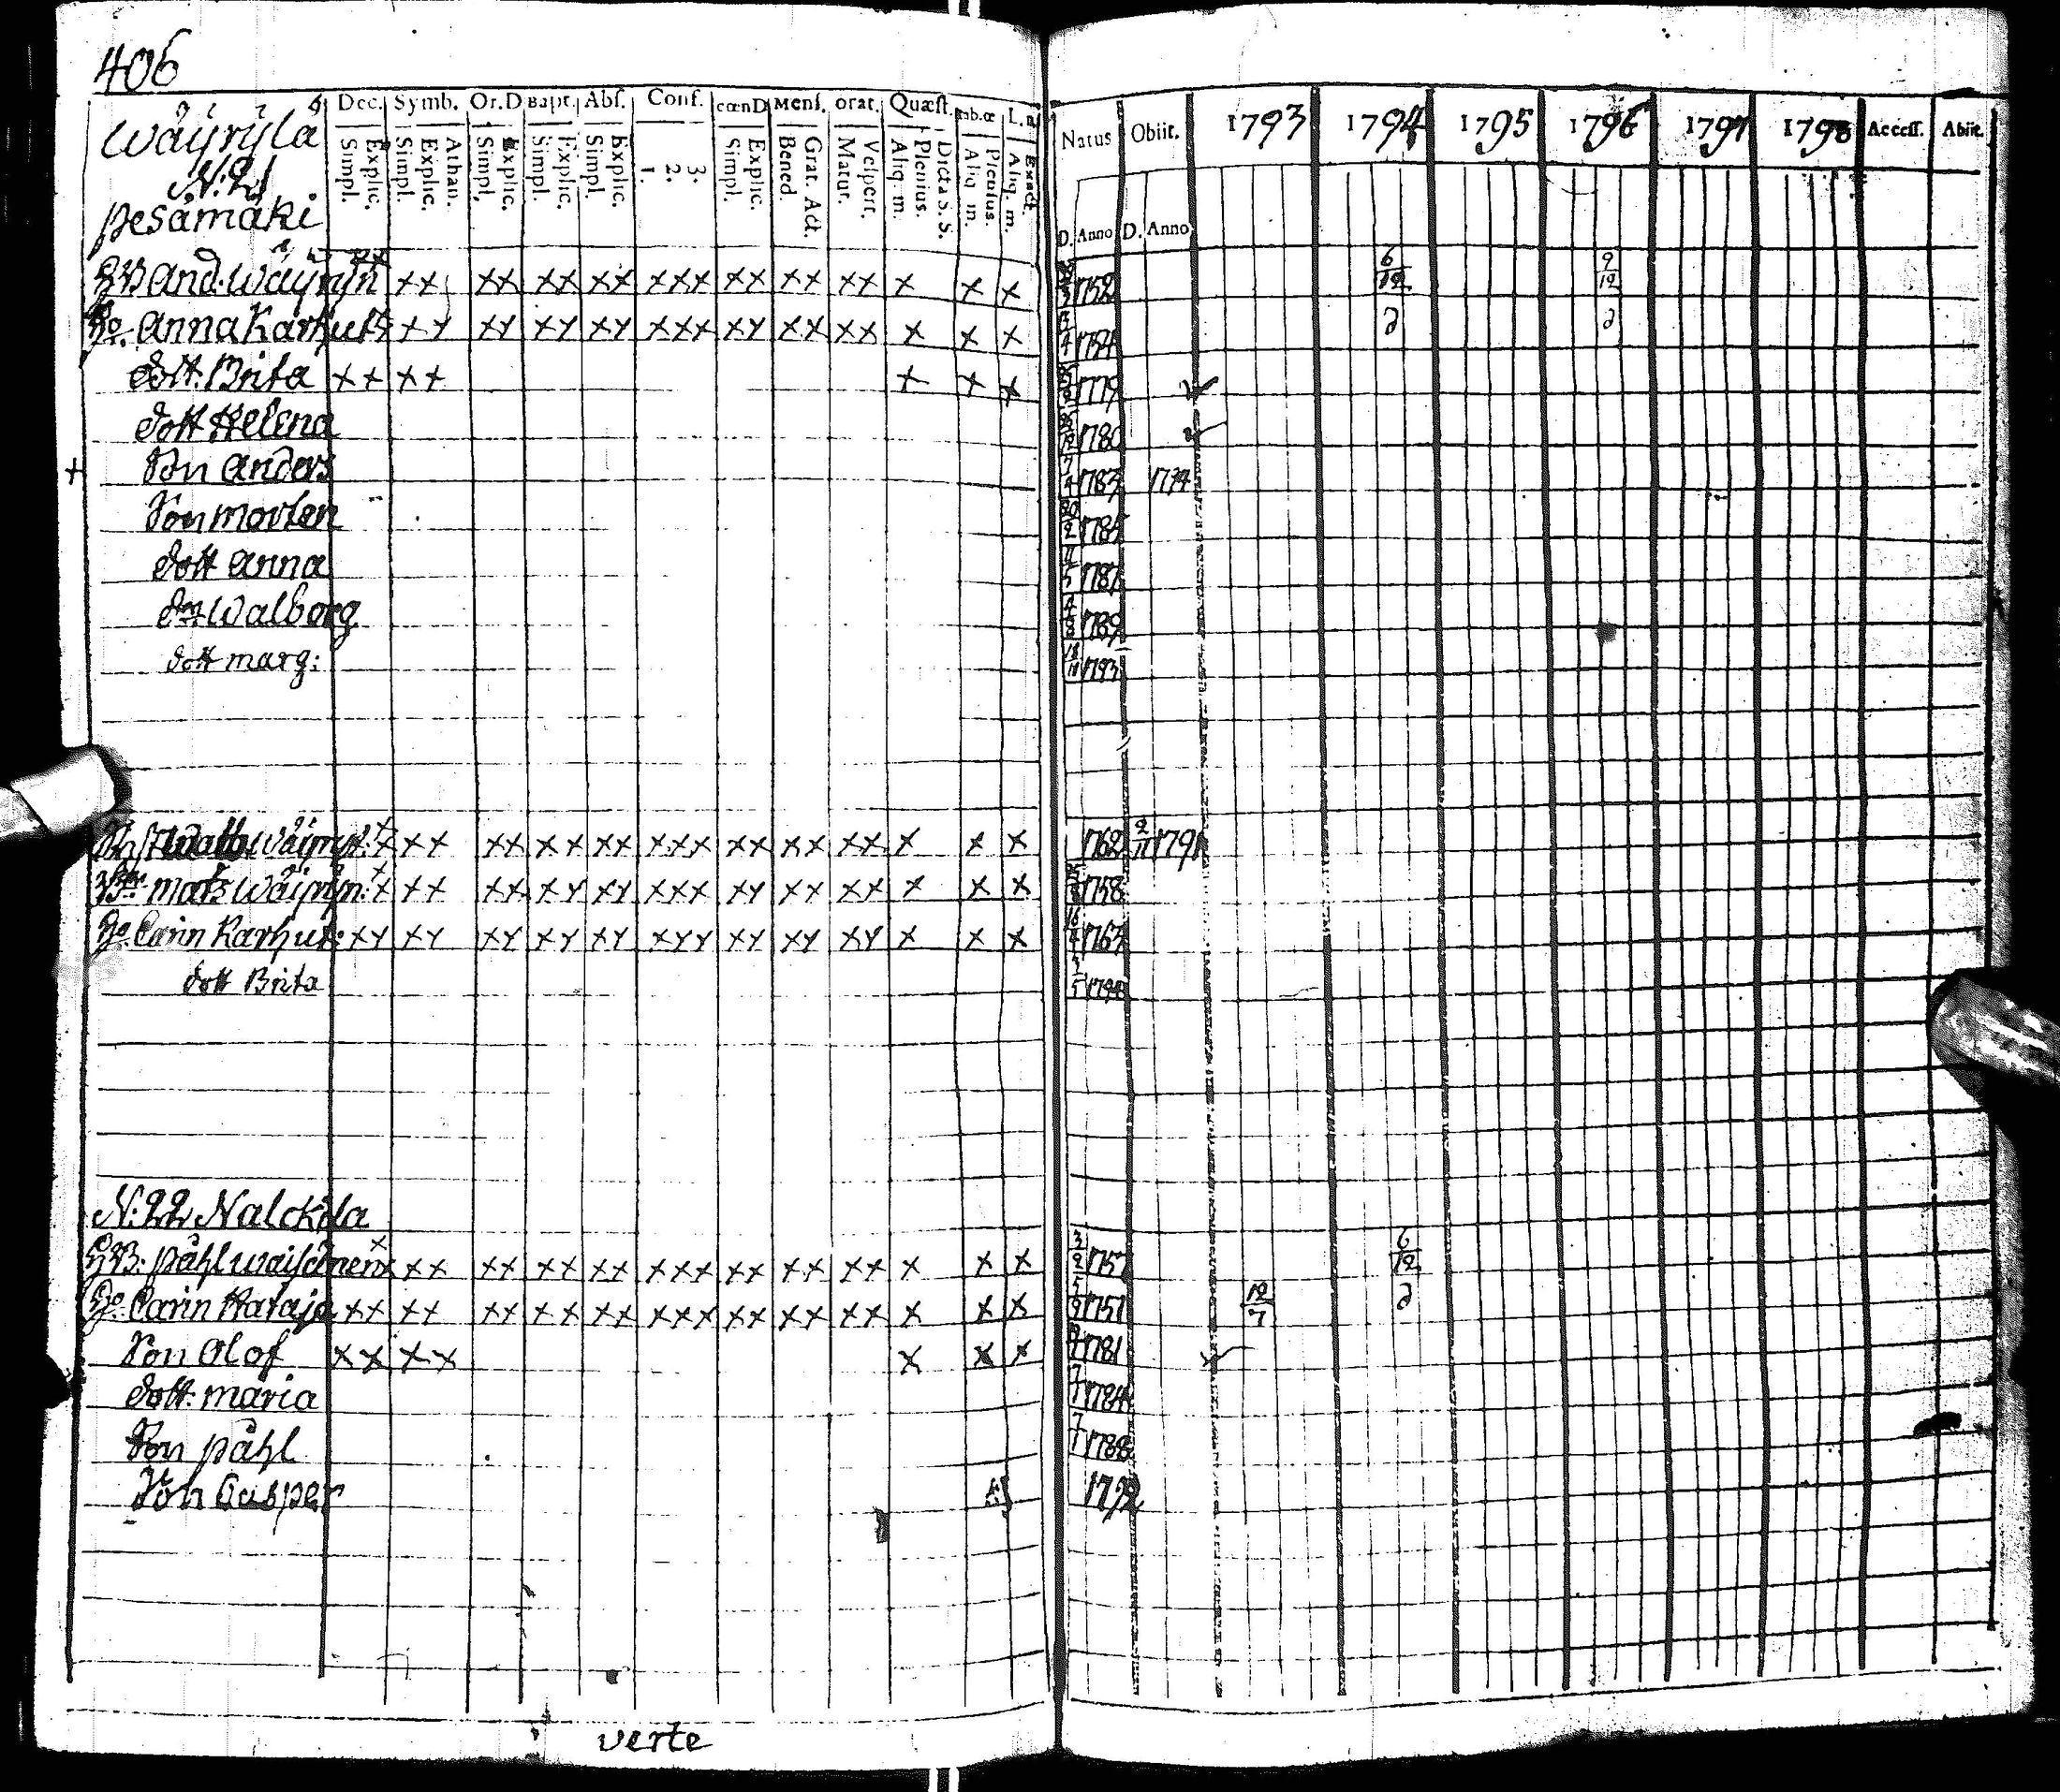 406
Wäÿrÿlä Dec. Symb. Or.D Bapt. Abſ. Conf. cœnD Menſ. orat. Quæſt. L.n Natus Obiit. 1793 1794 1795 1796 1797 1798 Acceſſ. Abiit.
N:21 Simpl. Explic. Simpl. Explic. Athan. Simpl. Explic. Simpl. Explic. Simpl. Explic. 1. 2. 3. Simpl. Explic. Bened. Grat. Act. Matut. Veſpert. Aliq. m. Plenius. Dicta S. S. Aliq. m. Plenius. Aliq. m. Exact.
pesämäki D. Anno D. Anno
And. Wäÿrÿn xx xx xx xx xxx xx xx xx x x x 1752 6/12 9/12
Anna Karhut xx xx xx xx xxx xx xx xx x x x 1754
dott. Brita xx xx x x x 1779
dott Helena 1780
+ Son Anders 7/4 1783 1794
Son Morten 20/2 1785
dott Anna 11/5 1787
Walborg 1789
dott marg: 1793
Wäÿryn: xx xx xx xx xxx xx xx xx x x x 1762 2/11 1791
Mats Wäÿrÿn: xx xx xx xx xxx xx xx xx x x x 1758
Carin Karhut: xx xx xx xx xx xxx xx xx xx x x x 1763
dott Brita
N:22 Nalckila
Påhl Waisänen xx xx xx xx xxx xx xx xx x x x 3/2 1757 6/12
Carin Hataja xx xx xx xx xx xxx xx xx xx x x x 1751 12/7
Son Olof xx xx x x x 1781
dott. Maria 1784
Son påhl 7/1 1788
Son Casper 1792
verte